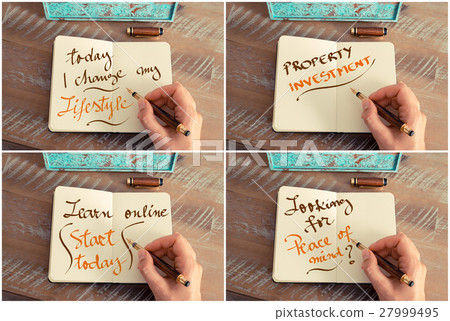 today
I change my
Lifestyle
PROPERTY
INVESTMENT
Learn online
Start
today
Looking
for
Peace of
mind?
27999495